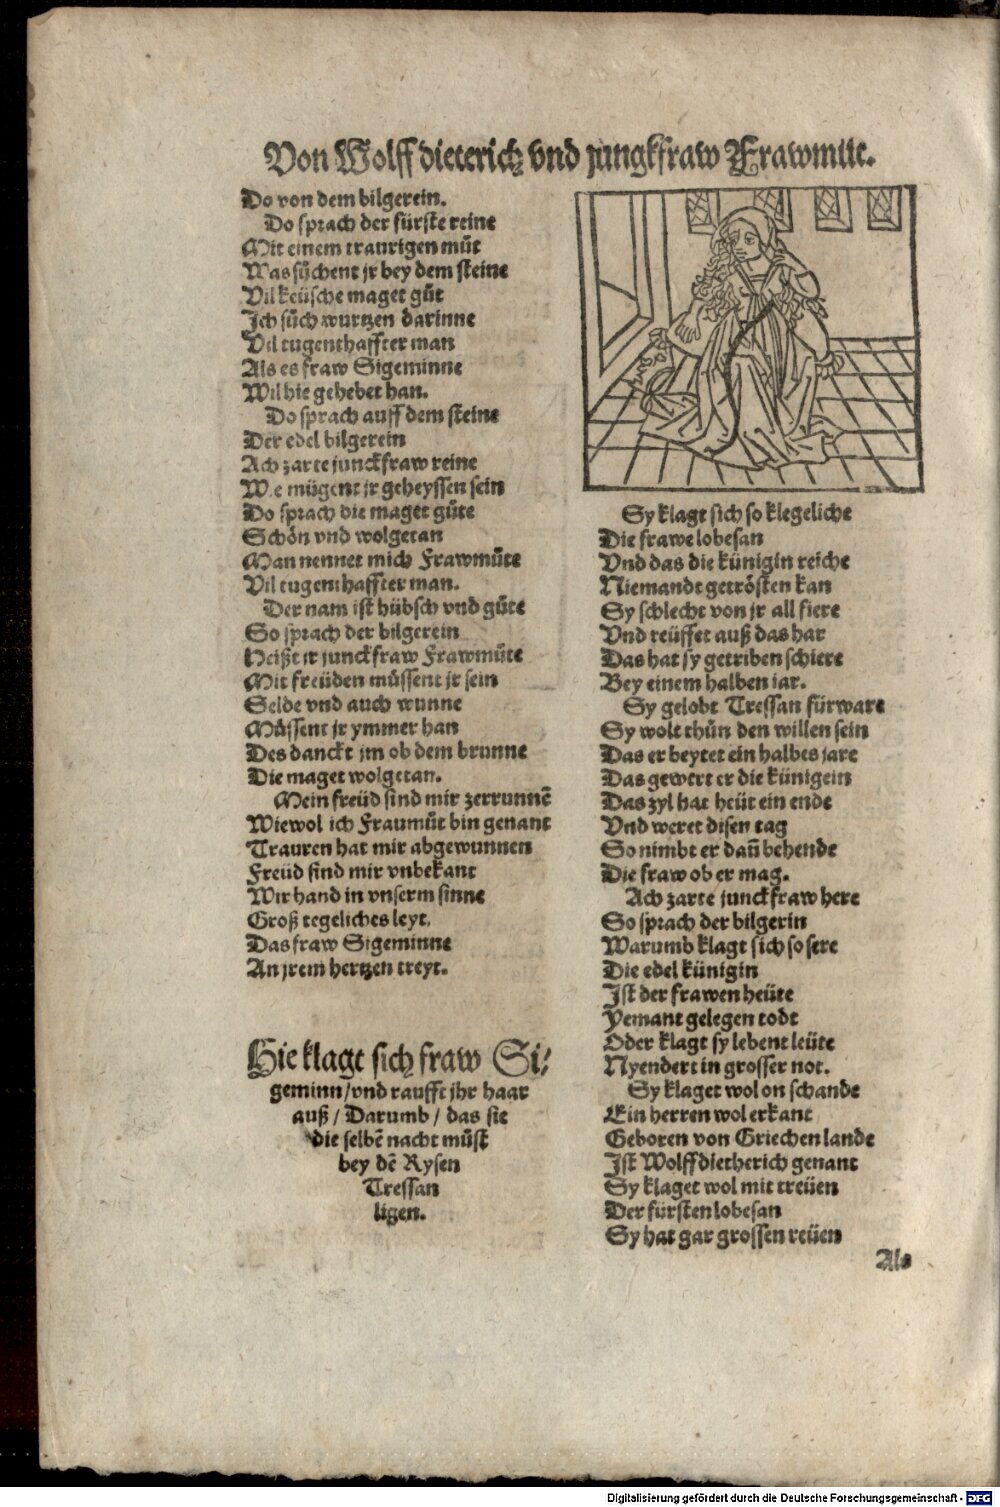 Von Wolffdieterich vnd jungkfraw Frawmůt.
Do von dem bilgerein.
Do sprach der fürste reine
Mit einem traurigen můt
Was sůchent jr bey dem steine
Vil keüsche maget gůt
Ich sůch wurtzen darinne
Vil tugenthaffter man
Als es fraw Sigeminne
Wil hie gehebet han.
Do sprach auff dem steine
Der edel bilgerein
Ach zarte junckfraw reine
Wie mügent jr geheyssen sein
Do sprach die maget gůte
Schön vnd wolgetan
Man nennet mich Frawmůte
Vil tugenthaffter man.
Der nam ist hübsch vnd gůte
So sprach der bilgerein
Heißt ir junckfraw Frawmůte
Mit freüden müssent jr sein
Selde vnd auch wunne
Müssent jr ymmer han
Des danckt jm ob dem brunne
Die maget wolgetan.
Mein freüd sind mir zerrunnē
Wiewol ich Fraumůt bin genant
Trauren hat mir abgewunnen
Freüd sind mir vnbekant
Wir hand in vnserm sinne
Groß tegeliches leyt.
Das fraw Sigeminne
An jrem hertzen treyt.
Hie klagt sich fraw Si/
geminn/vnd raufft jhr haar
auß / Darumb / das sie
die selbē nacht můst
bey dē Rysen
Tressan
ligen.
Sy klagt sich so klegeliche
Die frawe lobesan
Vnd das die künigin reiche
Niemandt getrösten kan
Sy schlecht von jr all fiere
Vnd reüffet auß das har
Das hat sy getriben schiere
Bey einem halben iar.
Sy gelobt Tressan fürware
Sy wolt thůn den willen sein
Das er beytet ein halbes jare
Das gewert er die künigein
Das zyl hat heüt ein ende
Vnd weret disen tag
So nimbt er dañ behende
Die fraw ob er mag.
Ach zarte junckfraw here
So sprach der bilgerin
Warumb klagt sich so sere
Die edel künigin
Ist der frawen heüte
Yemant gelegen todt
Oder klagt sy lebent leüte
Nyendert in grosser not.
Sy klaget wol on schande
Ein herren wol erkant
Geboren von Griechen lande
Ist Wolffdietherich genant
Sy klaget wol mit treüen
Der fürsten lobesan
Sy hat gar grossen reüen
Als
Digitalisierung gefördert durch die Deutsche Forschungsgemeinschaft - DFG